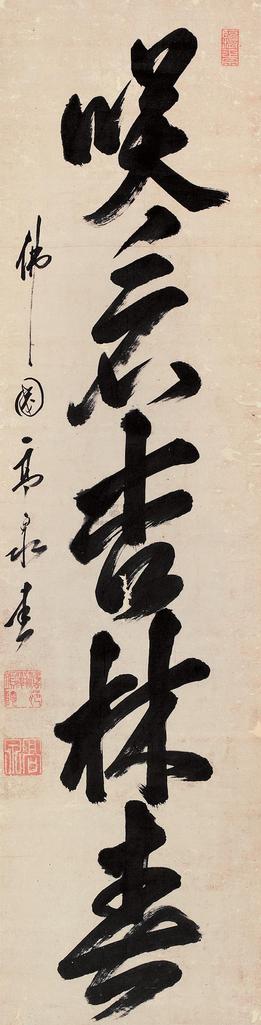 咲杏林春
佛國高泉書